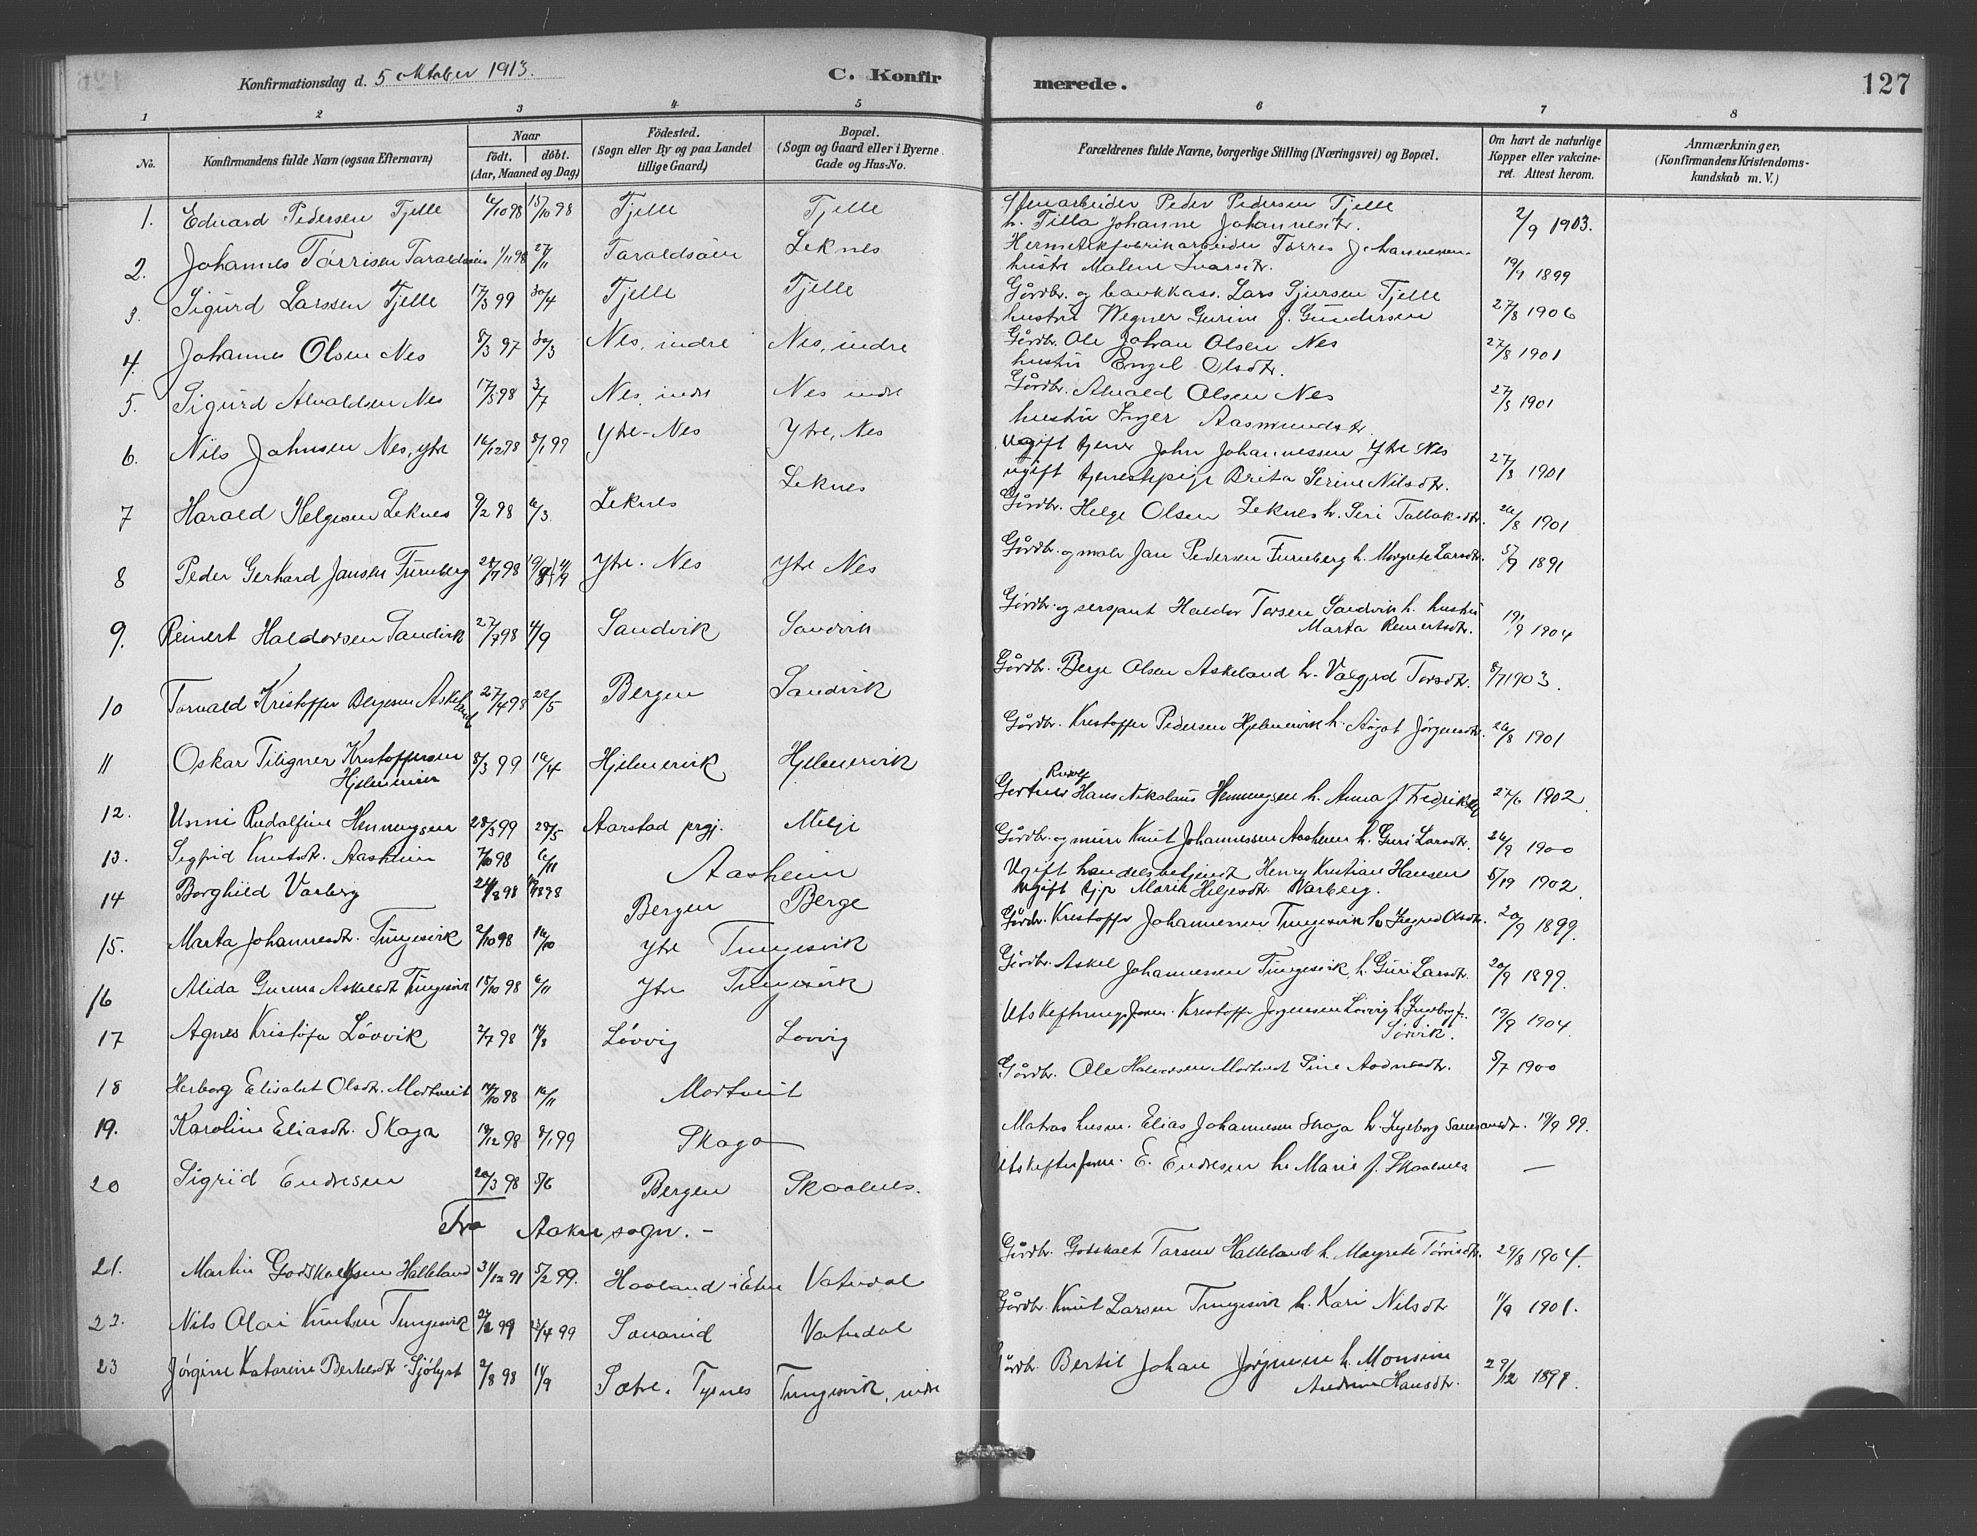 Konfirmationsdag d. 5 oktober 1913. C. Konfirmerede. 127
1 2 3 4 5 6 7 8
No. Konfirmandens fulde Navn (ogsaa Efternavn) Naar födt. döbt. (Aar, Maaned og Dag) Födested. (Sogn eller By og paa Landet tillige Gaard) Bopæl. (Sogn og Gaard eller i Byerne Gade og Hus-No. Forældrenes fulde Navne, borgerlige Stilling (Næringsvei) og Bopæl. Om havt de naturlige Kopper eller vakcineret. Attest herom. Anmærkninger, (Konfirmandens Kristendomskundskab m. V.)
1. Edvard Pedersen Tjelle 6/10 98 15/10 98 Tjelle Tjelle Peder Pedersen Tjelle h. Tilla Johanne Johannesdtr. 2/9 1903.
2. Johannes Tørrisen 1/11 98 27/11 Leknes Tørres Johannessen hustr Malene Ivarsdtr. 19/9 1899
3. Sigurd Larssen Tjelle 17/3 99 30/4 Tjelle Tjelle Gårdbr. og bankkass. Lars Sjursen Tjelle hustru Wegner Gurine f. Gundersen 27/8 1906
4. Johannes Olsen Nes 8/3 97 30/3 Nes, indre Nes, indre Gårdbr. Ole Johan Olsen Nes hustru Engel Olsdtr. 27/8 1901
5. Sigurd Alvaldsen Nes 17/5 98 3/7 Nes, indre Nes indre Gårdbr. Alvald Olsen Nes hustru Inger Aasmundsdtr. 27/8 1901
6. Nils Johnsen Nes, ytre 16/12 98 8/1 99 Ytre-Nes Ytre, Nes Ugift tjener John Johannessen Ytre Nes ugift tjenestepige Brita Serine Nilsdtr. 27/8 1901
7 Harald Helgesen Leknes 9/2 98 6/3 Leknes Leknes Gårdbr. Helge Olsen Leknes h. Siri Tallaksdtr. 26/8 1901
8 Peder Gerhard Jansen Furuberg 28/7 98 Ytre-Nes Ytre Nes Gårdbr. og maler Jan Pedersen Furuberg h. Margrete Larsdtr. 5/9 1891
9. Reinert Haldorsen Sandvik 27/7 98 4/9 Sandvik Sandvik Gårdbr. og sersjant Haldor Torsen Sandvik h. hustru Marta Reinertsdtr. 19/9 1904
10 Torvald Kristoffer Bergesen Askeland 27/4 98 22/5 Bergen Sandvik Gårdbr. Berge Olsen Askeland h. Valgjerd Torsdtr. 8/7 1903.
11 Oskar Kristoffersen Hjelmervik 8/3 99 16/4 Hjelmervik Hjelmervik Gårdbr. Kristoffer Pedersen Hjelmervik h. Jørgensdtr. 26/8 1901
12. Unni Rudolfine Henningsen 28/3 99 28/5 Aarstad prgj. Milje Gartner Hans Nikolaus Henningsen h. Anna f. 27/6 1902
13. Sigfrid Knutsdtr. Aasheim 7/10 98 6/11 Aasheim Gårdbr. og murer Knut Johannessen Aasheim h. Guri Larsdtr. 26/9 1900
14 Borghild Varberg 24/8 98 Bergen Berge Ugift handelsbetjent Henry Kristian Hansen Ugift tjp Marie Helgesdtr. Varberg. 1902
15. Marta Johannesdtr. Tungesvik 2/10 98 16/10 Ytre Tungesvik Gårdbr. Kristoffer Johannessen Tungesvik Olsdtr. 20/9 1899.
16 Alida Gurina Askelsdtr Tungesvik 15/10 98 6/11 Ytre Tungesvik Gårdbr. Askel Johannessen Tungesvik h. Guri Larsdtr. 20/9 1899.
17 Agnes Kristofa Løvvik 2/7 98 Løvvig Lovvig Kristoffer Jørgensen Løvvig h. Ingeborg f. Sørvik. 19/9 1904
18 Herborg Elisabet Olsdtr. Mortveit 14/10 98 16/11 Mortveit Gårdbr. Ole Halvorsen Mortveit Sine Aadnesdtr. 5/7 1900
19. Karoline Eliasdtr. Skaga 19/12 98 8/1 99 Skaga Matros husm. Elias Johannesen Skaga h. Ingeborg 19/9 99.
20 Sigrid Endresen 20/3 98 5/6 Bergen Skaalnes. E. Endresen h. Marie f. Skaalnes —
Fra Aakre sogn. –
21. Martin Godskalksen Halleland 31/12 91 5/2 99. Haaland i Etne Vatndal Gårdbr. Godskalk Tarsen Halleland h. Margrete Tørrisdtr. 29/8 1904.
22. Nils Olai Knutsen Tungesvik 27/2 99 23/4 99 Vatndal Gårdbr. Knut Larsen Tungesvik h. Kari Nilsdtr 11/9 1901.
23 Jørgine Katarine Bertelsdtr Sjölyst 2/8 98 14/9 Sætre, Tysnes Tungesvik, indre Gårdbr. Bertil Johan Jørgensen h. Monsine Andrea Hansdtr. 29/12 1898.